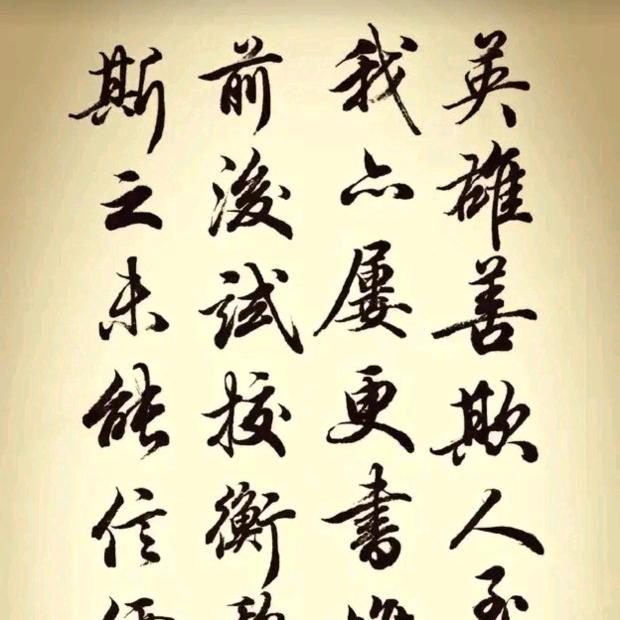 英雄善欺人
我亦屢更書
前後試校衡
斯之未能信